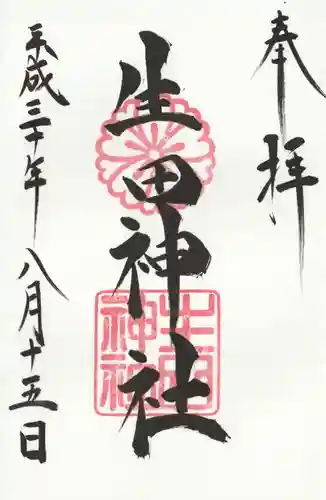 奉拝
生田神社
平成三十年八月十五日
生田神社